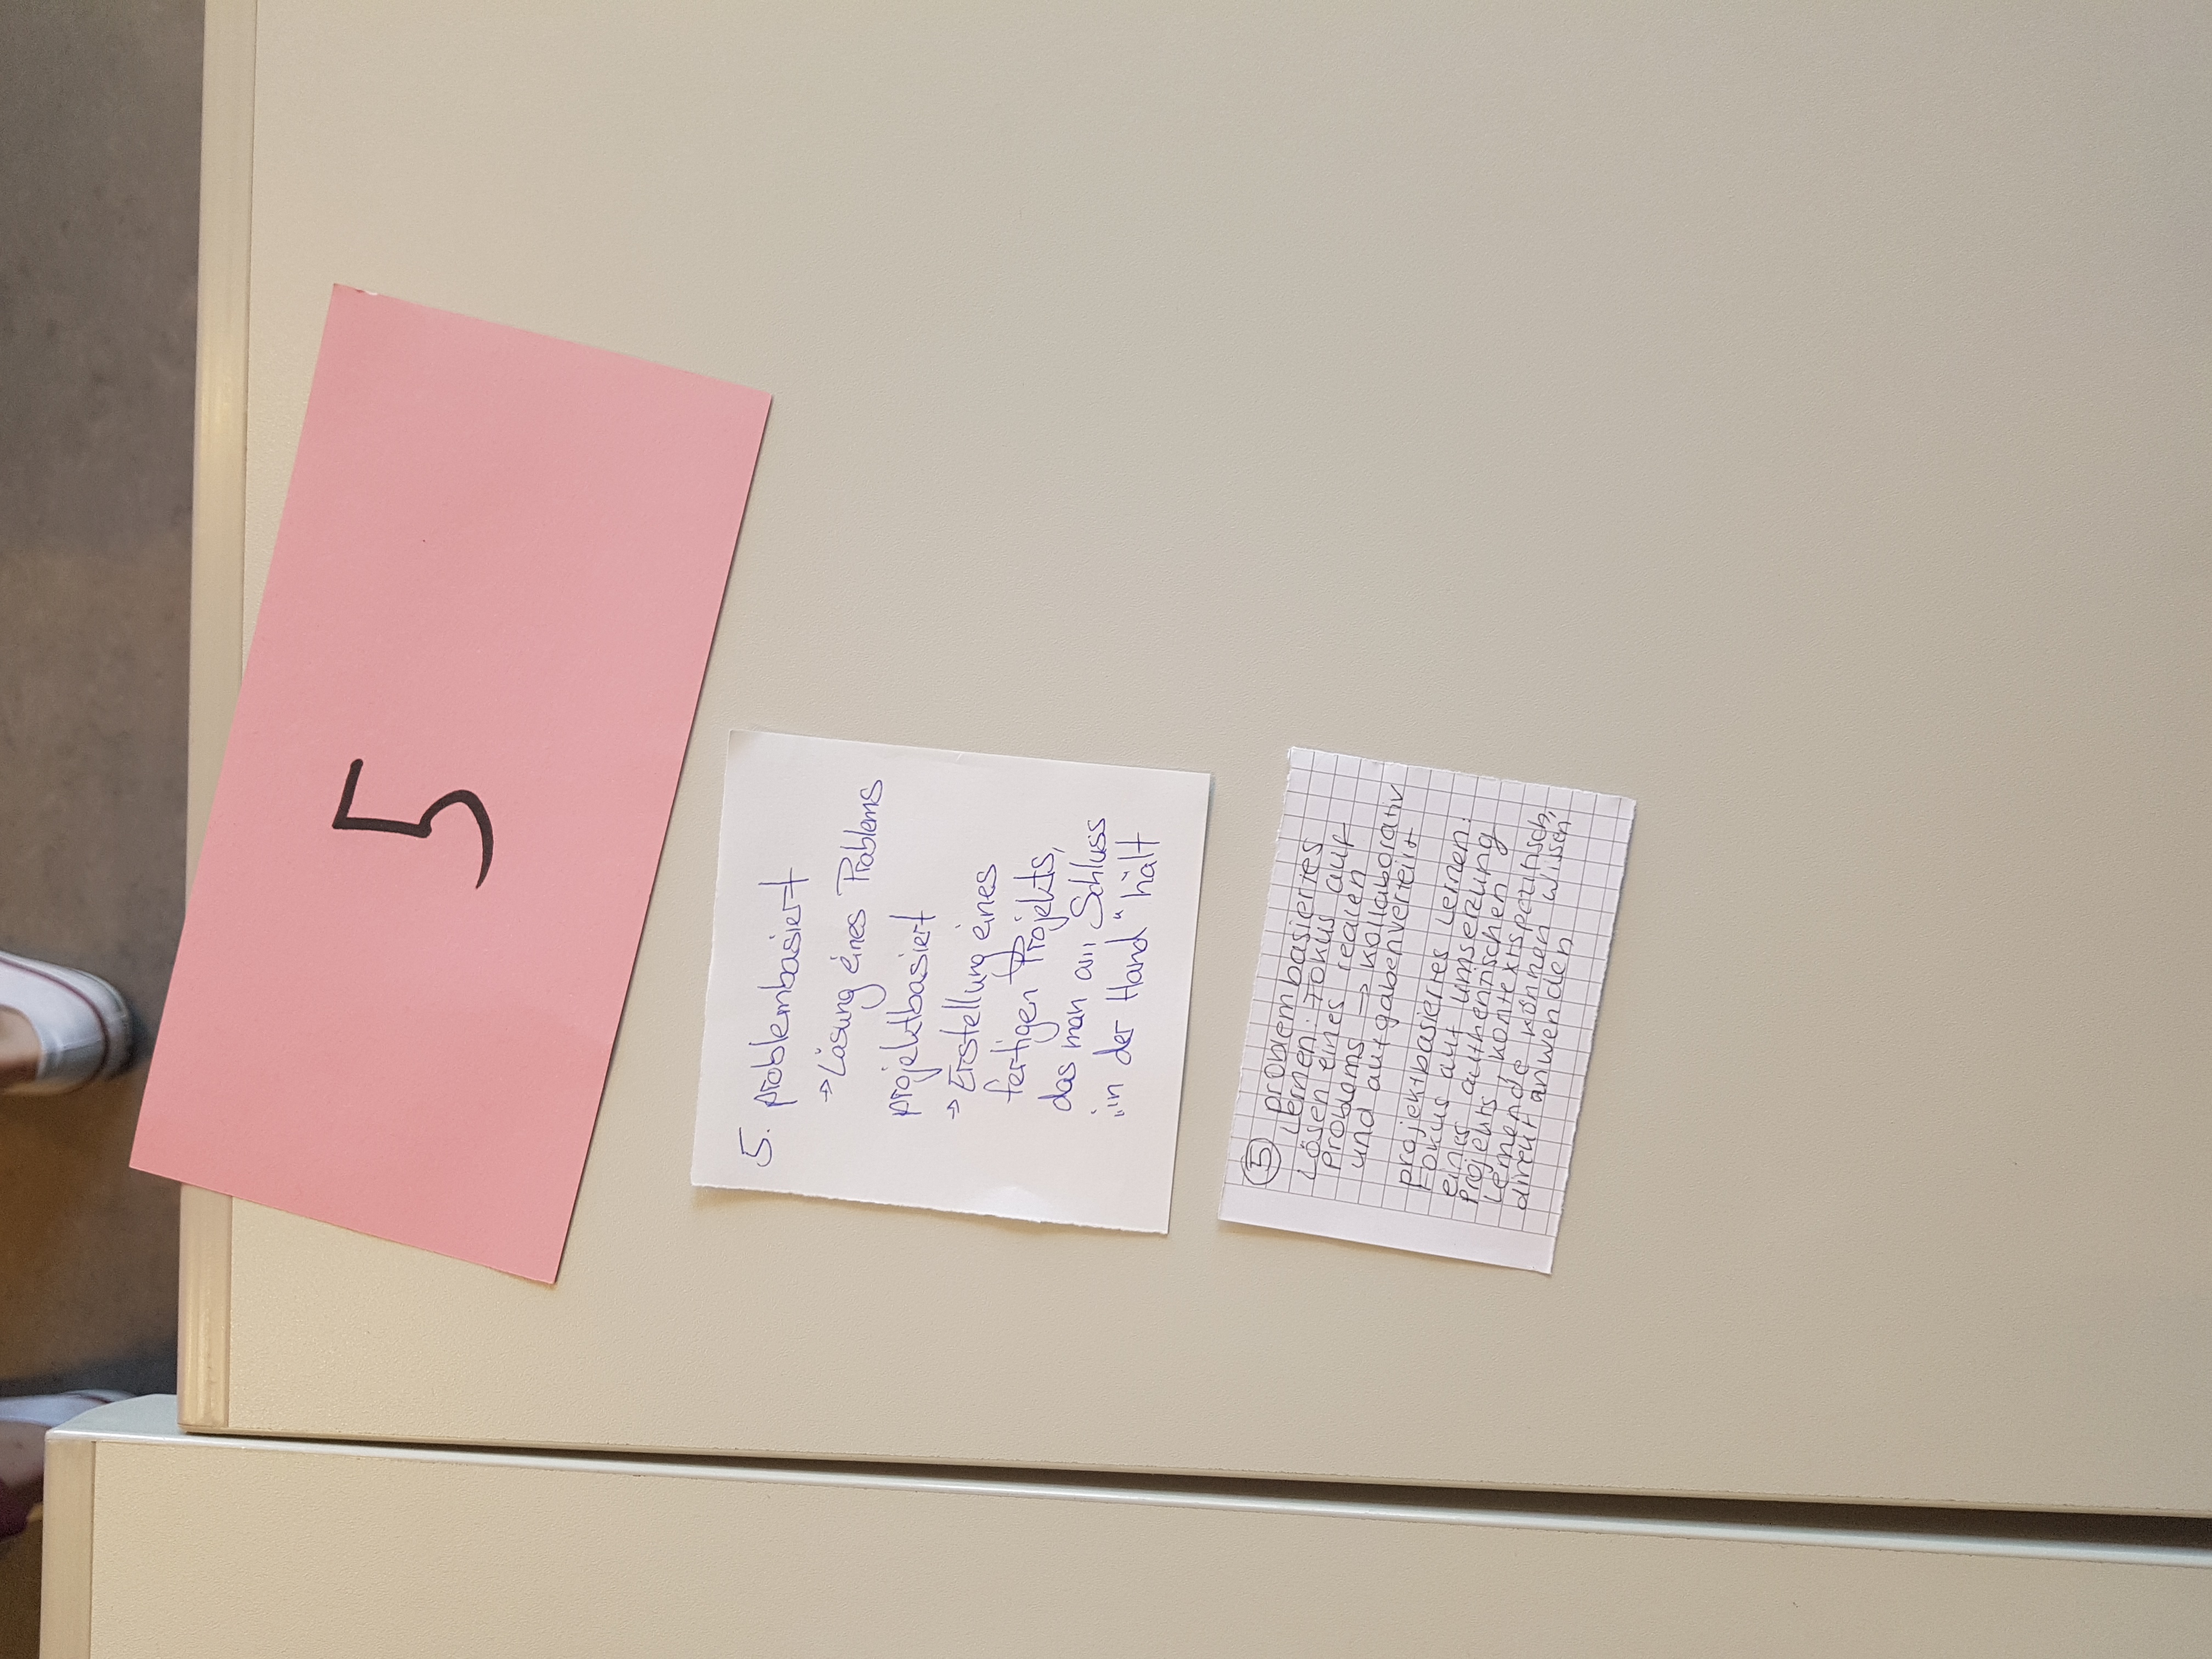 5
5. problembasiert
→ Lösung eines Problems
projektbasiert
→ Erstellung eines
fertigen Projekts,
das man am Schluss
„in der Hand" hält
5 problembasiertes
Lernen: Fokus auf
Lösen eines realen
Problems → kollaborativ
und aufgabenverteilt
projektbasiertes Lernen:
Fokus auf Umsetzung
eines authentischen
Projekts, kontextspezifisch,
Lernende können Wissen
direkt anwenden